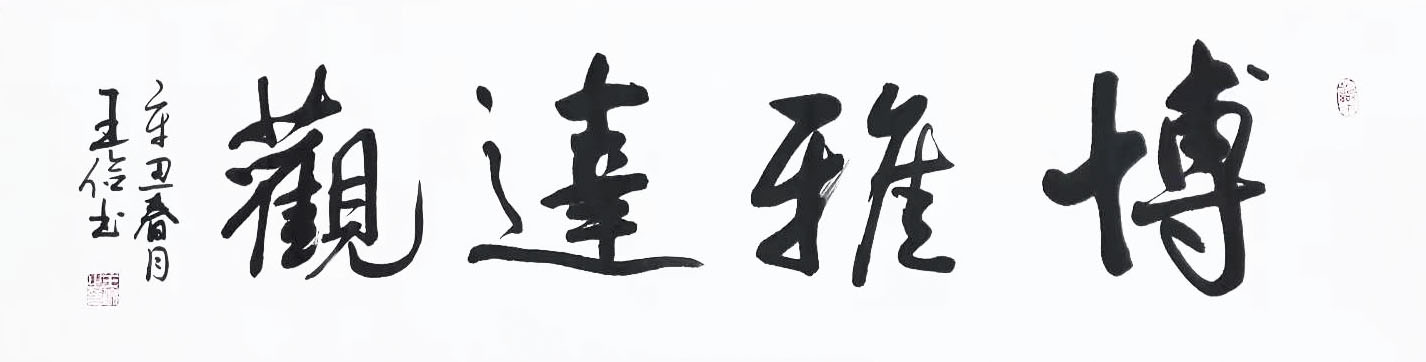 博雅達觀
辛丑春月
王俭书